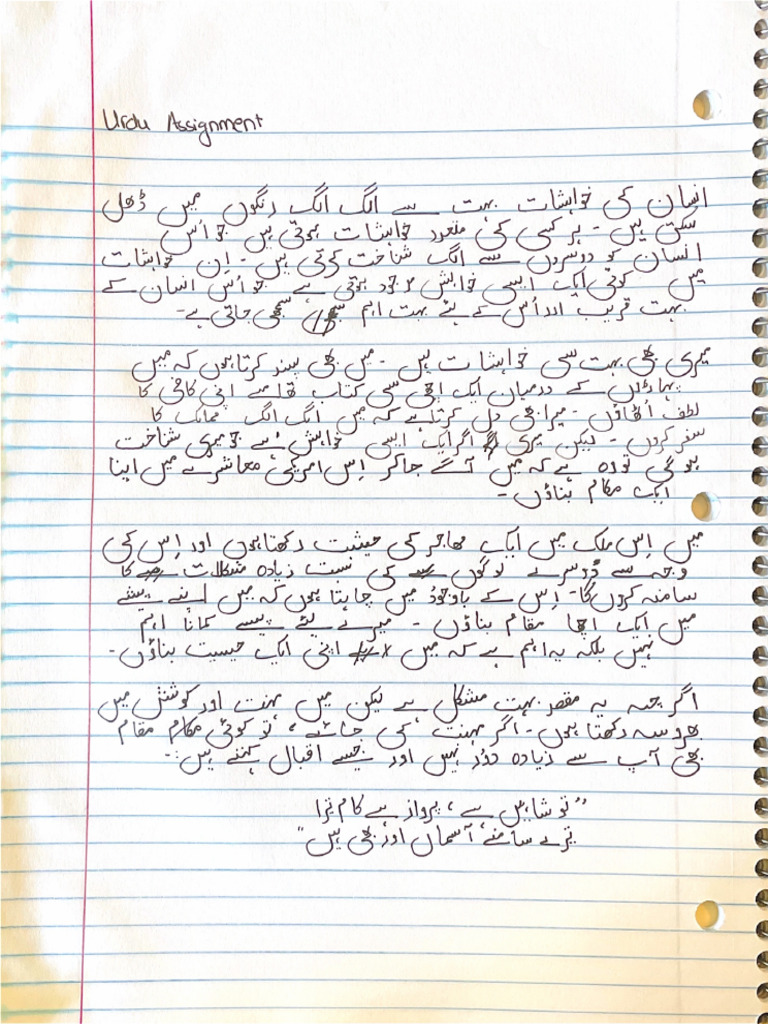 Urdu Assignment
انسان کی خواہشات بہت سے الگ الگ رنگوں میں ڈھل
سکتی ہیں - ہر کسی کی متعود خواہشات ہوتی ہیں جو اُس
انسان کو دوسروں سے الگ شناخت کرتی ہیں - اِن خواہشات
میں کوئی ایک ایسی خواہش موجود ہوتی ہے جو اُس انسان کے
بہت قریب اور اُس کے لئے بہت اہم سمجھی جاتی ہے-
میری بھی بہت سی خواہشات ہیں - میں بھی پسند کرتا ہوں کہ میں
پہاڑوں کے درمیان ایک اچھی سی کتاب تھامے اپنی کافی کا
لطف اُٹھاؤں - میرا بھی دل کرتا ہے کہ میں الگ الگ ممالک کا
سفر کروں - لیکن میری اگر ایک ایسی خواہش ہے جو میری شناخت
ہو گی تو وہ ہے کہ میں آگے جا کر اِس امریکی معاشرے میں اپنا
ایک مکام بناؤں -
میں اِس ملک میں ایک مھاجر کی حیثیت رکھتا ہوں اور اِس کی
وجہ سے دُوسرے لوگوں کی نسبت زیادہ مشکلات کا
سامنہ کروں گا - اِس کے باوجُود میں چاہتا ہوں کہ میں اپنے پیشے
میں ایک اچھا مقام بناؤں - میرے لئے پیسے کمانا اہم
نہیں بلکہ یہ اہم ہے کہ میں اپنی ایک حیسیت بناؤں -
اگر چہ یہ مقصر بہت مشکل ہے لیکن میں مہنت اور کوشش میں
بھروسہ رکھتا ہوں - اگر مہنت کی جائے، تو کوئی مقام
بھی آپ سے زیادہ دُور نہیں اور جیسے اقبال کہتے ہیں :-
"تو شاہیں ہے، پرواز ہے کام تیرا
تیرے سامنے آسمان اور بھی ہیں"